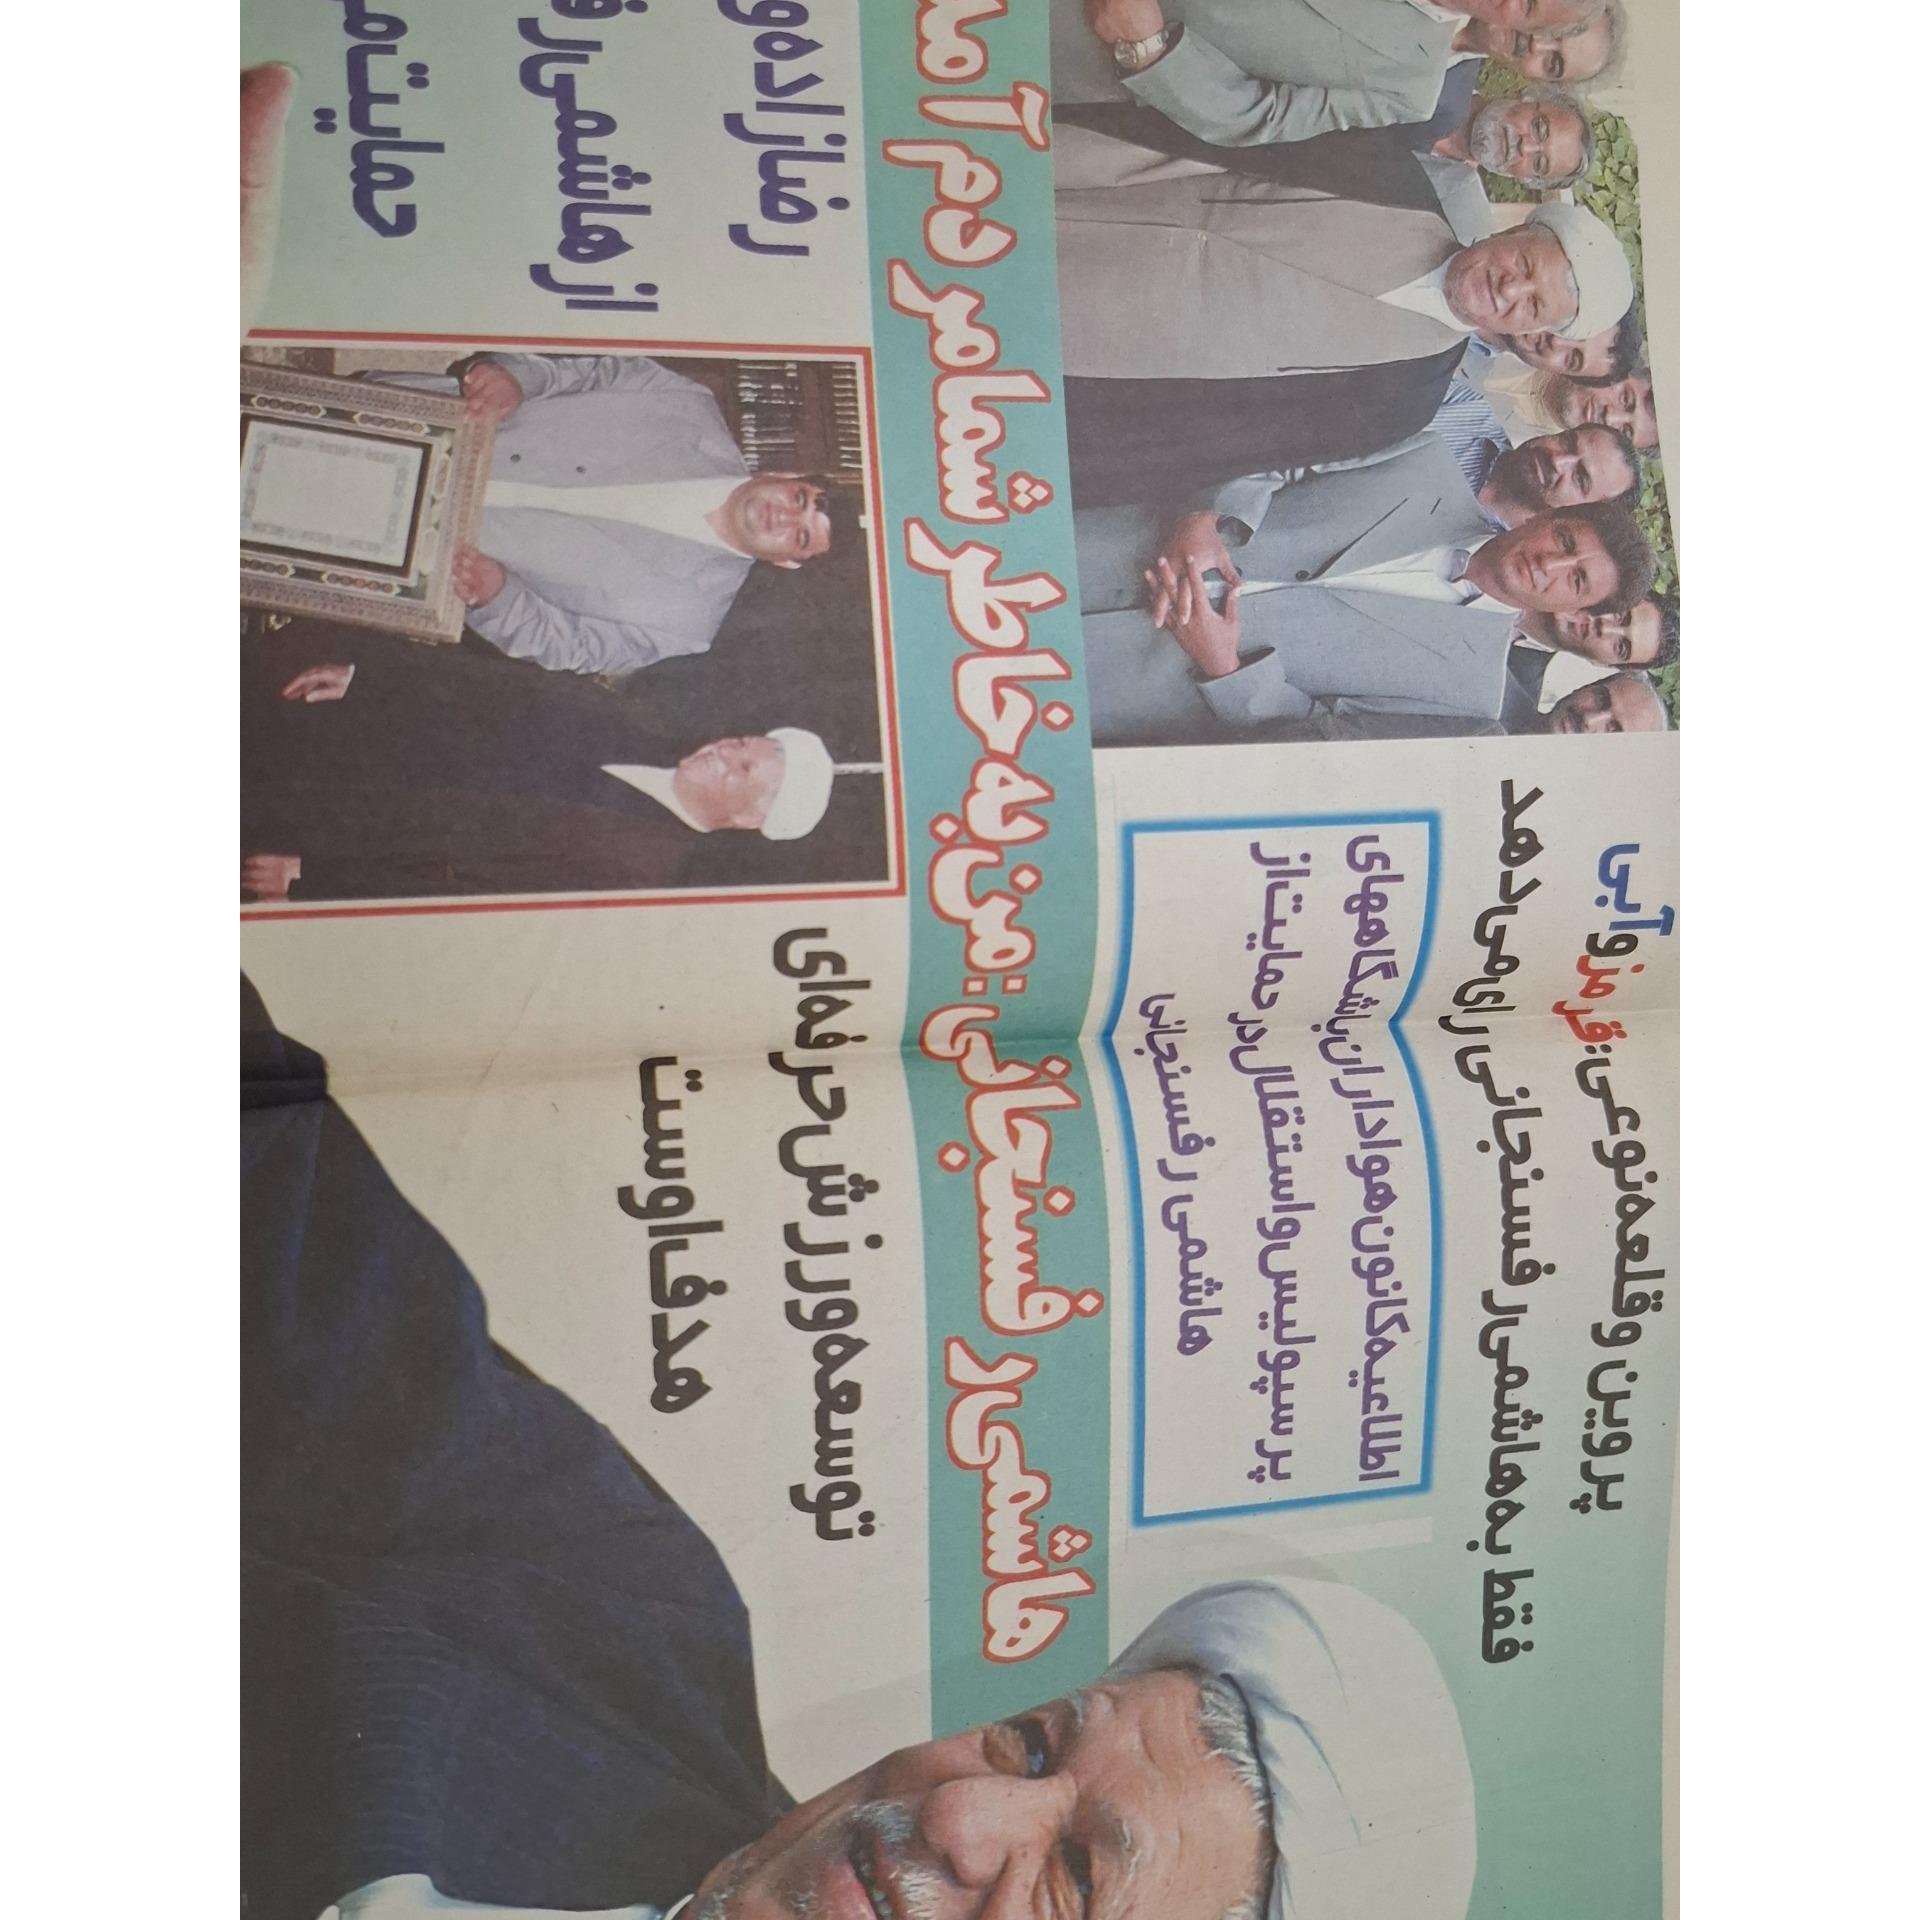 پروین و قلعه‌نوعی: قرمز و آبی
فقط به هاشمی رفسنجانی رای می دهد
اطلاعیه کانون هواداران باشگاههای
پرسپولیس و استقلال در حمایت از
هاشمی رفسنجانی
هاشمی رفسنجانی: من به خاطر شما مردم آمد
توسعه ورزش حرفه‌ای
هدف اوست
رضازاده و
از هاشمی رف
حمایت مر